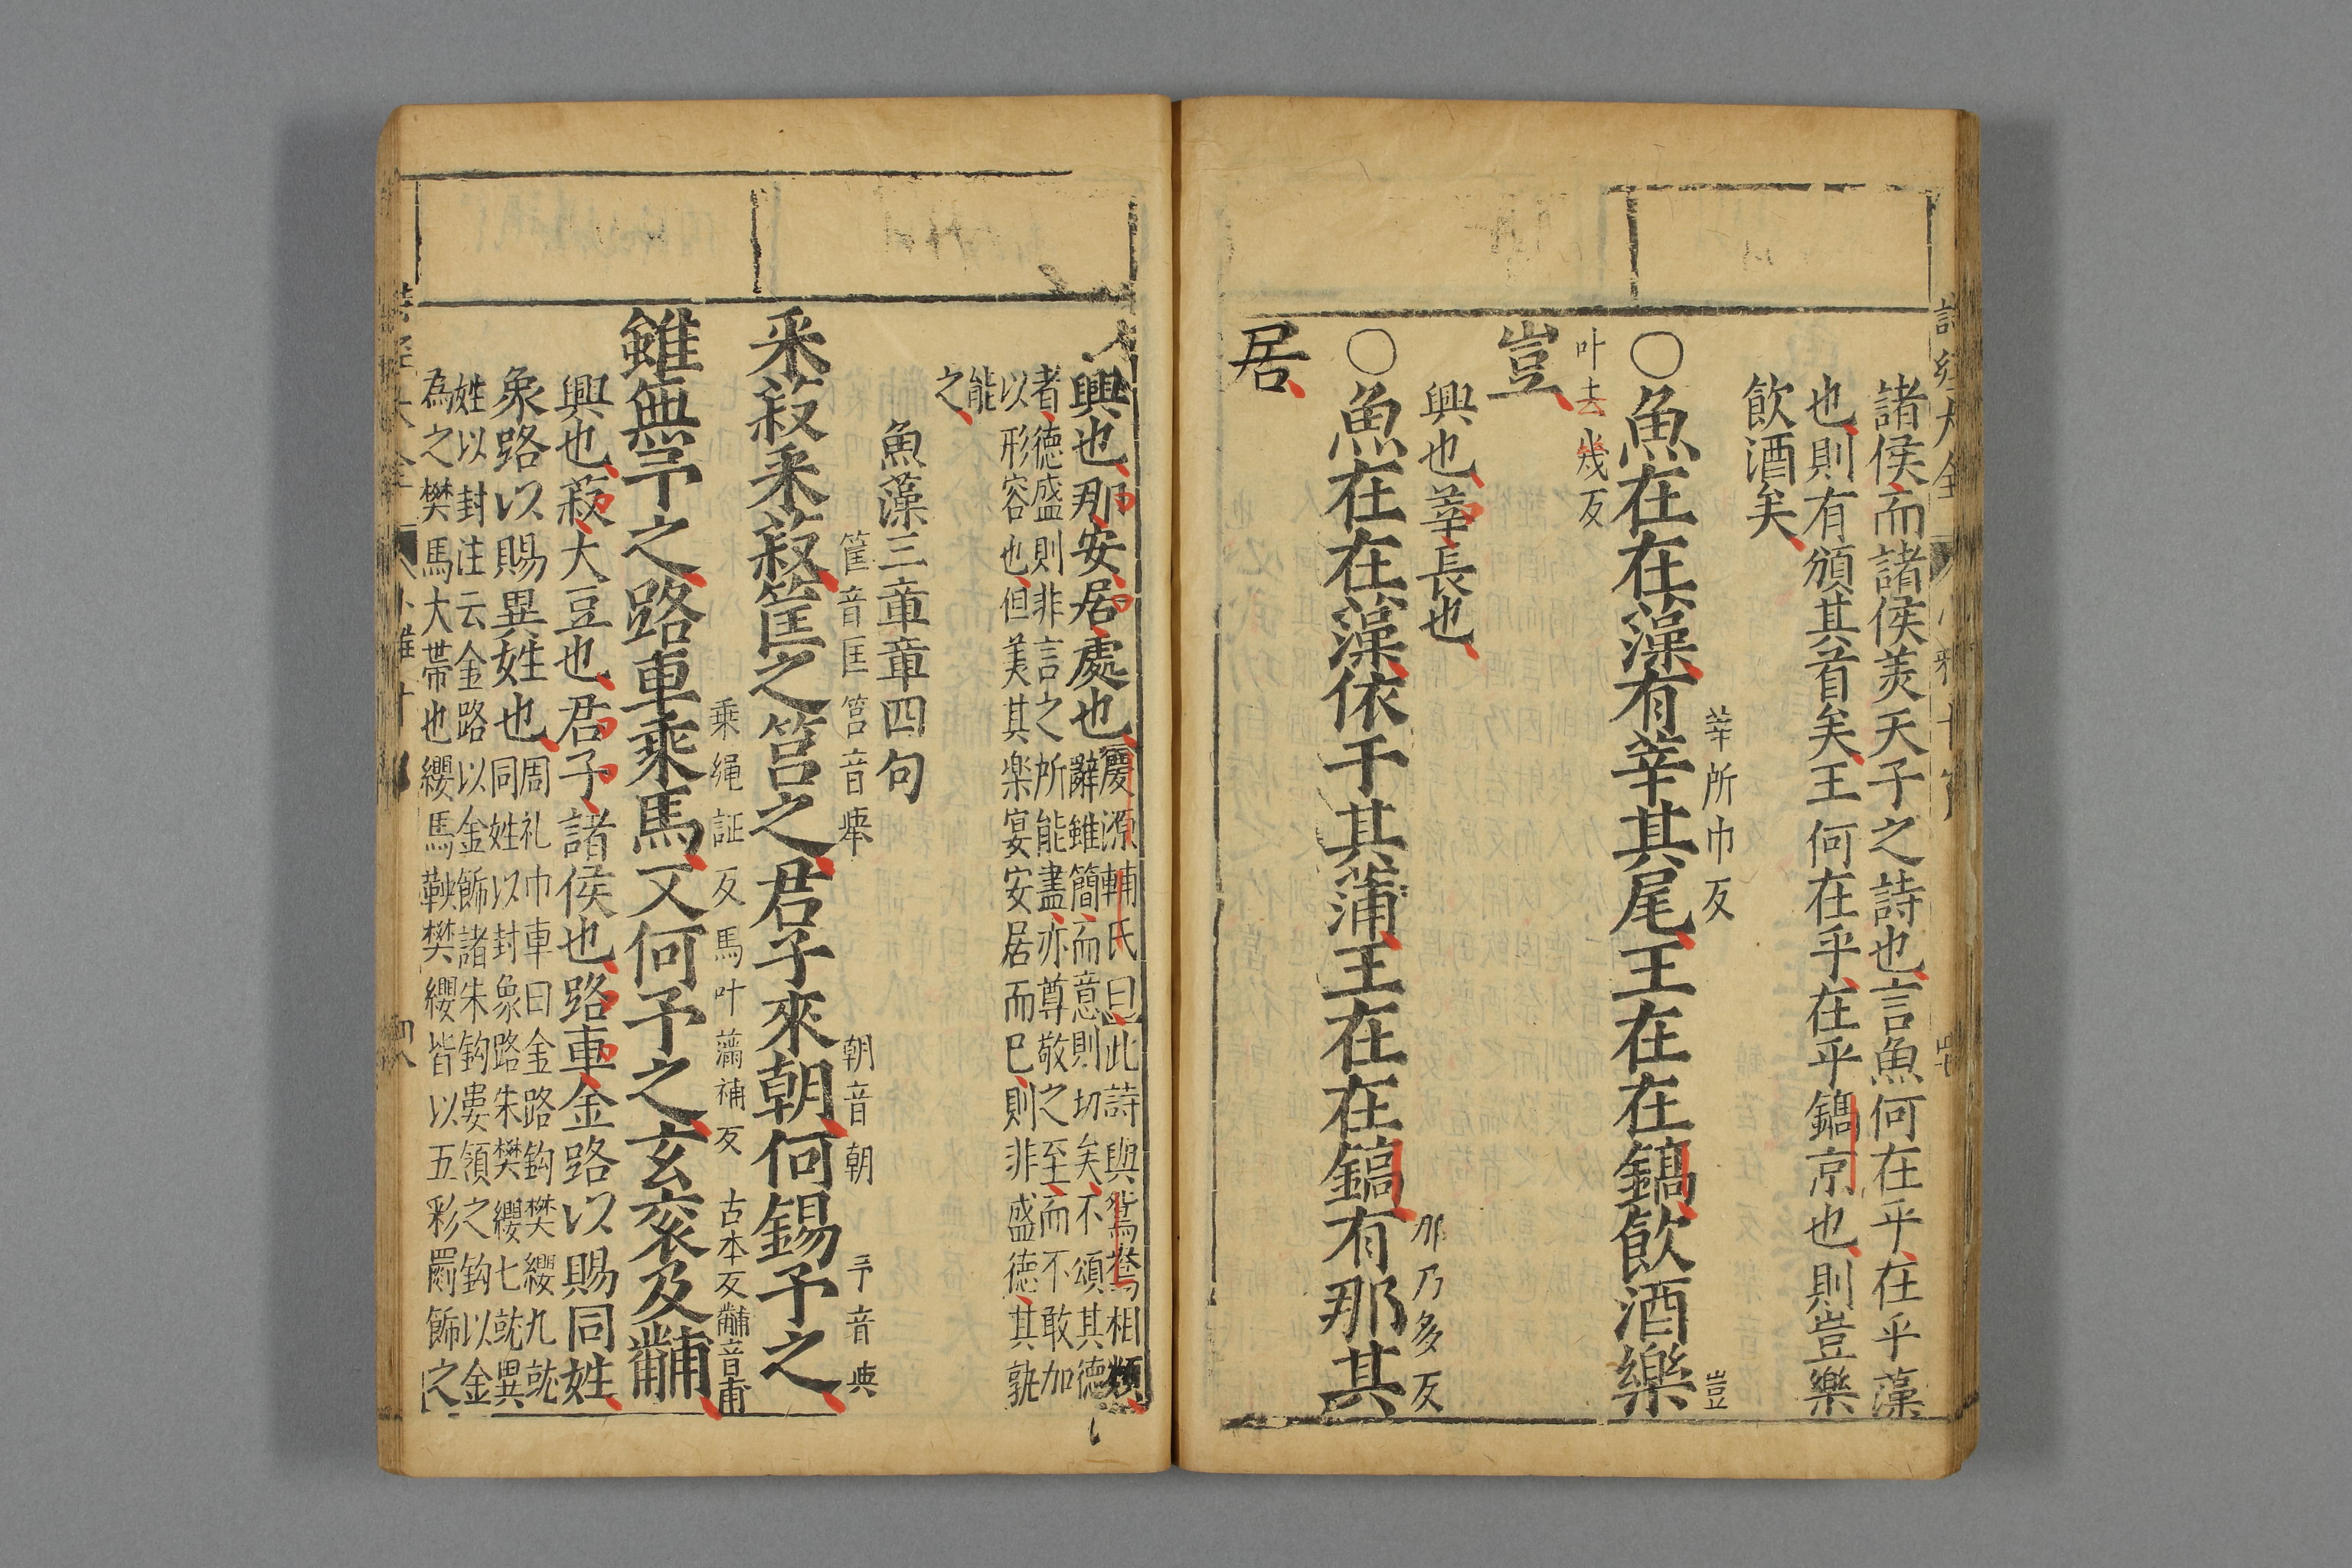 諸侯而諸侯美天子之詩也言魚何在乎在乎藻
也則有頒其首矣王何在乎在乎鎬京也則豈樂
飲酒矣
莘所巾反
豈
○魚在在藻有莘其尾王在在鎬飲酒樂
叶去幾反
豈
興也莘長也
那乃多反
○魚在在藻依于其蒲王在在鎬有那其
居
興也那安居處也
慶源輔氏曰此詩與鴛鴦相類
辭雖簡而意則切矣不頌其德
者德盛則非言之所能盡亦尊敬之至而不敢加
以形容也但美其楽宴安居而已則非盛德其孰
能
之
魚藻三章章四句
筐音匡筥音舉
朝音朝
予音與
采菽采菽筐之筥之君子來朝何錫予之
乗繩証反馬叶滿補反
古本反黼音甫
雖無予之路車乘馬又何予之玄衮及黼
興也菽大豆也君子諸侯也路車金路以賜同姓
象路以賜異姓也
周礼巾車曰金路鈎樊纓九就
同姓以封象路朱樊纓七就異
姓以封注云金路以金飾諸朱鈎婁領之鈎以金
為之樊馬大帯也纓馬鞅樊纓皆以五彩罽飾之